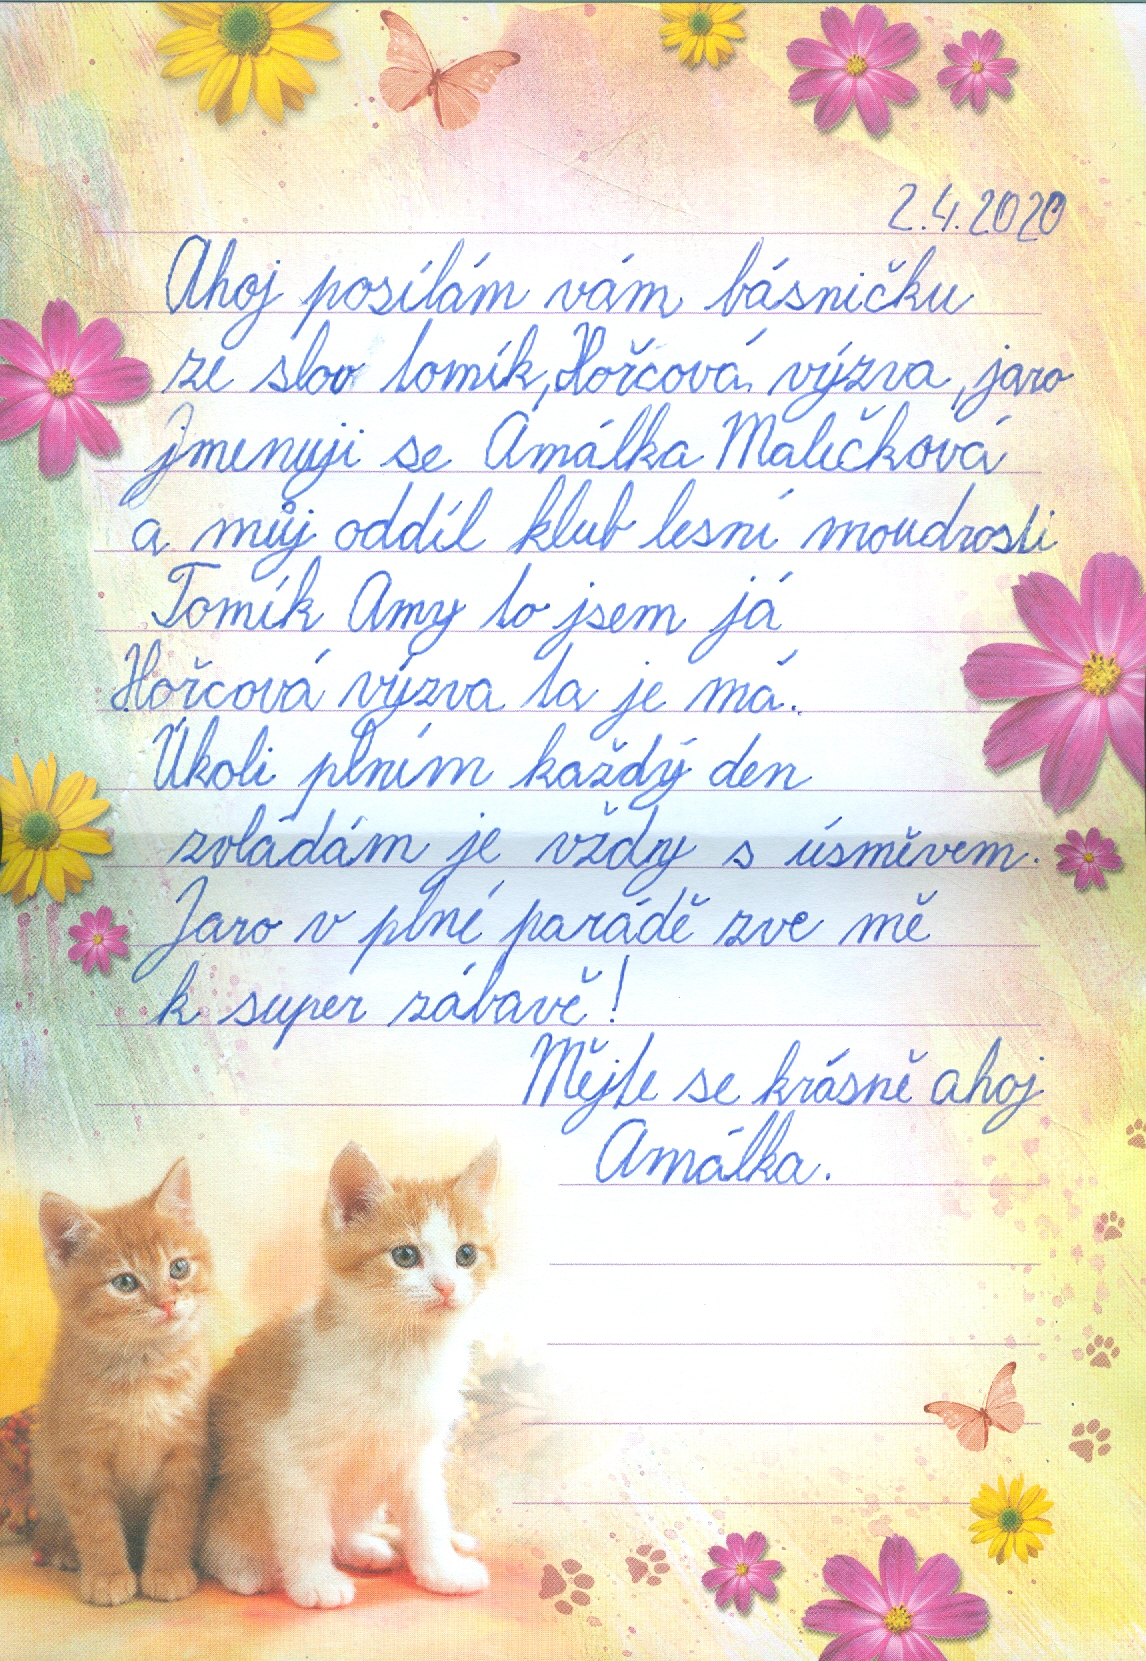 2.4.2020
Ahoj posílám vám básničku
ze slov tomík, Hořcová výzva, jaro
Jmenuji se Amálka Maličková
a můj oddíl klub lesní moudrosti
Tomík Amy to jsem já
Hořcová výzva ta je má.
Úkoli plním každý den
zvládám je vždy s úsměvem.
Jaro v plné parádě zve mě
k super zábavě!
Mějte se krásně ahoj
Amálka.